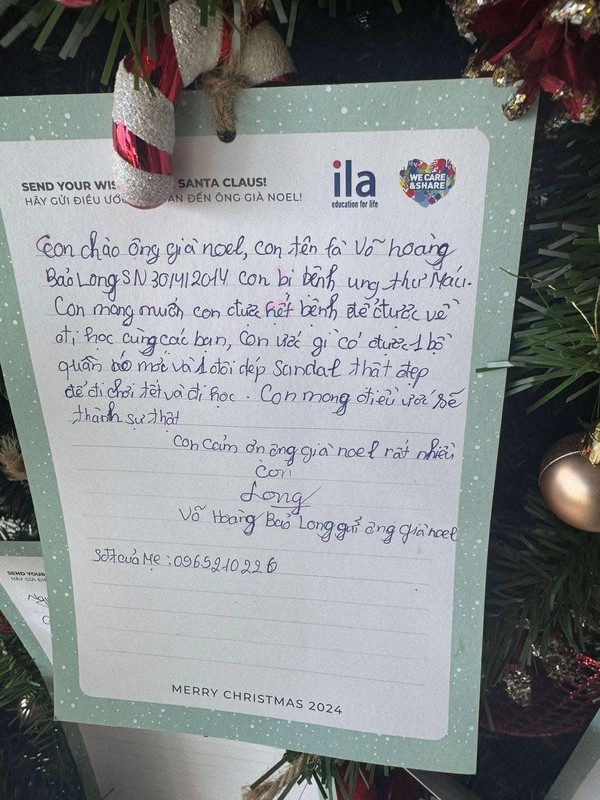 SEND YOUR WIS SANTA CLAUS!
HÃY GỬI ĐIỀU ƯỚC ĐẾN ÔNG GIÀ NOEL!
ila
education for life
WE CARE
&SHARE
Con chào ông già noel, con tên là Võ hoàng
Bảo Long SN 30/4/2014 con bị bệnh ung thư Máu.
Con mong muốn con được hết bệnh để được về
đi học cùng các bạn, Con ước gì có được 1 bộ
quần áo mới và 1 đôi dép sandal thật đẹp
để đi chơi tết và đi học. Con mong điều ước sẽ
thành sự thật
con cảm ơn ông già noel rất nhiều
con
Long
Võ Hoàng Bảo Long gửi ông già noel
Sđt của Mẹ: 0965210226
MERRY CHRISTMAS 2024
SEND YOUR
HÃY GỬI ĐI